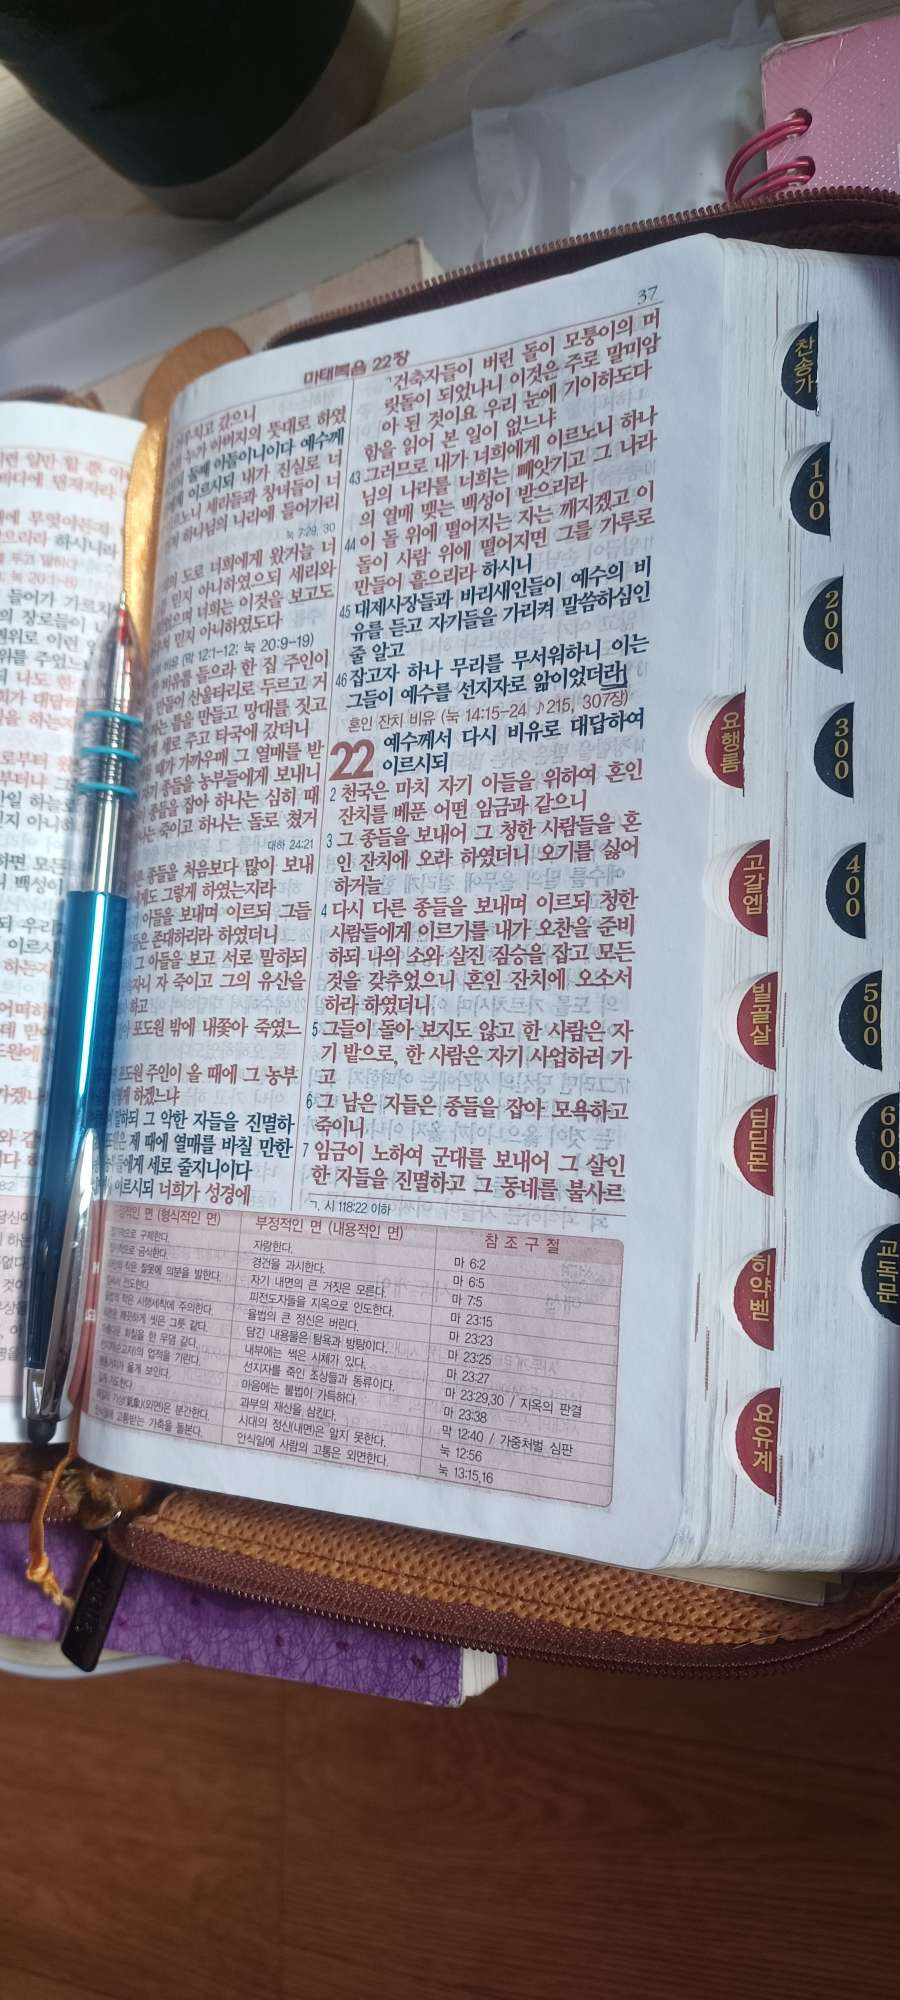 37
마태복음 22장
뉘우치고 갔으니
누가 아버지의 뜻대로 하였
둘째 아들이니이다 예수께
이르시되 내가 진실로 너
세리들과 창녀들이 너
하나님의 나라에 들어가리
눅 7:29, 30
도로 너희에게 왔거늘 너
믿지 아니하였으되 세리와
너희는 이것을 보고도
믿지 아니하였도다
비유 (막 12:1-12; 눅 20:9-19)
비유를 들으라 한 집 주인이
만들어 산울타리로 두르고 거
짜는 틀을 만들고 망대를 짓고
세로 주고 타국에 갔더니
때가 가까우매 그 열매를 받
자기 종들을 농부들에게 보내니
종들을 잡아 하나는 심히 때
하나는 죽이고 하나는 돌로 쳤거
대하 24:21
종들을 처음보다 많이 보내
그렇게 하였는지라
아들을 보내며 이르되 그들
존대하리라 하였더니
그 아들을 보고 서로 말하되
자 죽이고 그의 유산을
하고
포도원 밖에 내쫓아 죽였느
포도원 주인이 올 때에 그 농부
하겠느냐
말하되 그 악한 자들을 진멸하
제 때에 열매를 바칠 만한
세로 줄지니이다
이르시되 너희가 성경에
ㄱ건축자들이 버린 돌이 모퉁이의 머
릿돌이 되었나니 이것은 주로 말미암
아 된 것이요 우리 눈에 기이하도다
함을 읽어 본 일이 없느냐
43 그러므로 내가 너희에게 이르노니 하나
님의 나라를 너희는 빼앗기고 그 나라
의 열매 맺는 백성이 받으리라
44 이 돌 위에 떨어지는 자는 깨지겠고 이
돌이 사람 위에 떨어지면 그를 가루로
만들어 흩으리라 하시니
45 대제사장들과 바리새인들이 예수의 비
유를 듣고 자기들을 가리켜 말씀하심인
줄 알고
46 잡고자 하나 무리를 무서워하니 이는
그들이 예수를 선지자로 앎이었더라
혼인 잔치 비유 (눅 14:15-24 ♪215, 307장)
22 예수께서 다시 비유로 대답하여
이르시되
2 천국은 마치 자기 아들을 위하여 혼인
잔치를 베푼 어떤 임금과 같으니
3 그 종들을 보내어 그 청한 사람들을 혼
인 잔치에 오라 하였더니 오기를 싫어
하거늘
4 다시 다른 종들을 보내며 이르되 청한
사람들에게 이르기를 내가 오찬을 준비
하되 나의 소와 살진 짐승을 잡고 모든
것을 갖추었으니 혼인 잔치에 오소서
하라 하였더니
5 그들이 돌아 보지도 않고 한 사람은 자
기 밭으로, 한 사람은 자기 사업하러 가
고
6 그 남은 자들은 종들을 잡아 모욕하고
죽이니
7 임금이 노하여 군대를 보내어 그 살인
한 자들을 진멸하고 그 동네를 불사르
ㄱ. 시 118:22 이하
면 (형식적인 면) 부정적인 면 (내용적인 면) 참조구절
구제한다. 자랑한다. 마 6:2
금식한다. 경건을 과시한다. 마 6:5
작은 잘못에 의분을 발한다. 자기 내면의 큰 거짓은 모른다. 마 7:5
전도한다. 피전도자들을 지옥으로 인도한다. 마 23:15
작은 시행세칙에 주의한다. 율법의 큰 정신은 버린다. 마 23:23
깨끗하게 씻은 그릇 같다. 담긴 내용물은 탐욕과 방탕이다. 마 23:25
회칠을 한 무덤 같다. 내부에는 썩은 시체가 있다. 마 23:27
업적을 기린다. 선지자를 죽인 조상들과 동류이다. 마 23:29,30 / 지옥의 판결
옳게 보인다. 마음에는 불법이 가득하다. 마 23:38
과부의 재산을 삼킨다. 막 12:40 / 가중처벌 심판
분간한다. 시대의 정신(내면)은 알지 못한다. 눅 12:56
고통받는 가축을 돌본다. 안식일에 사람의 고통은 외면한다. 눅 13:15,16
찬송가
100
200
300
400
500
600
교독문
요행롬
고갈엡
빌골살
딤딛몬
히약벧
요유계